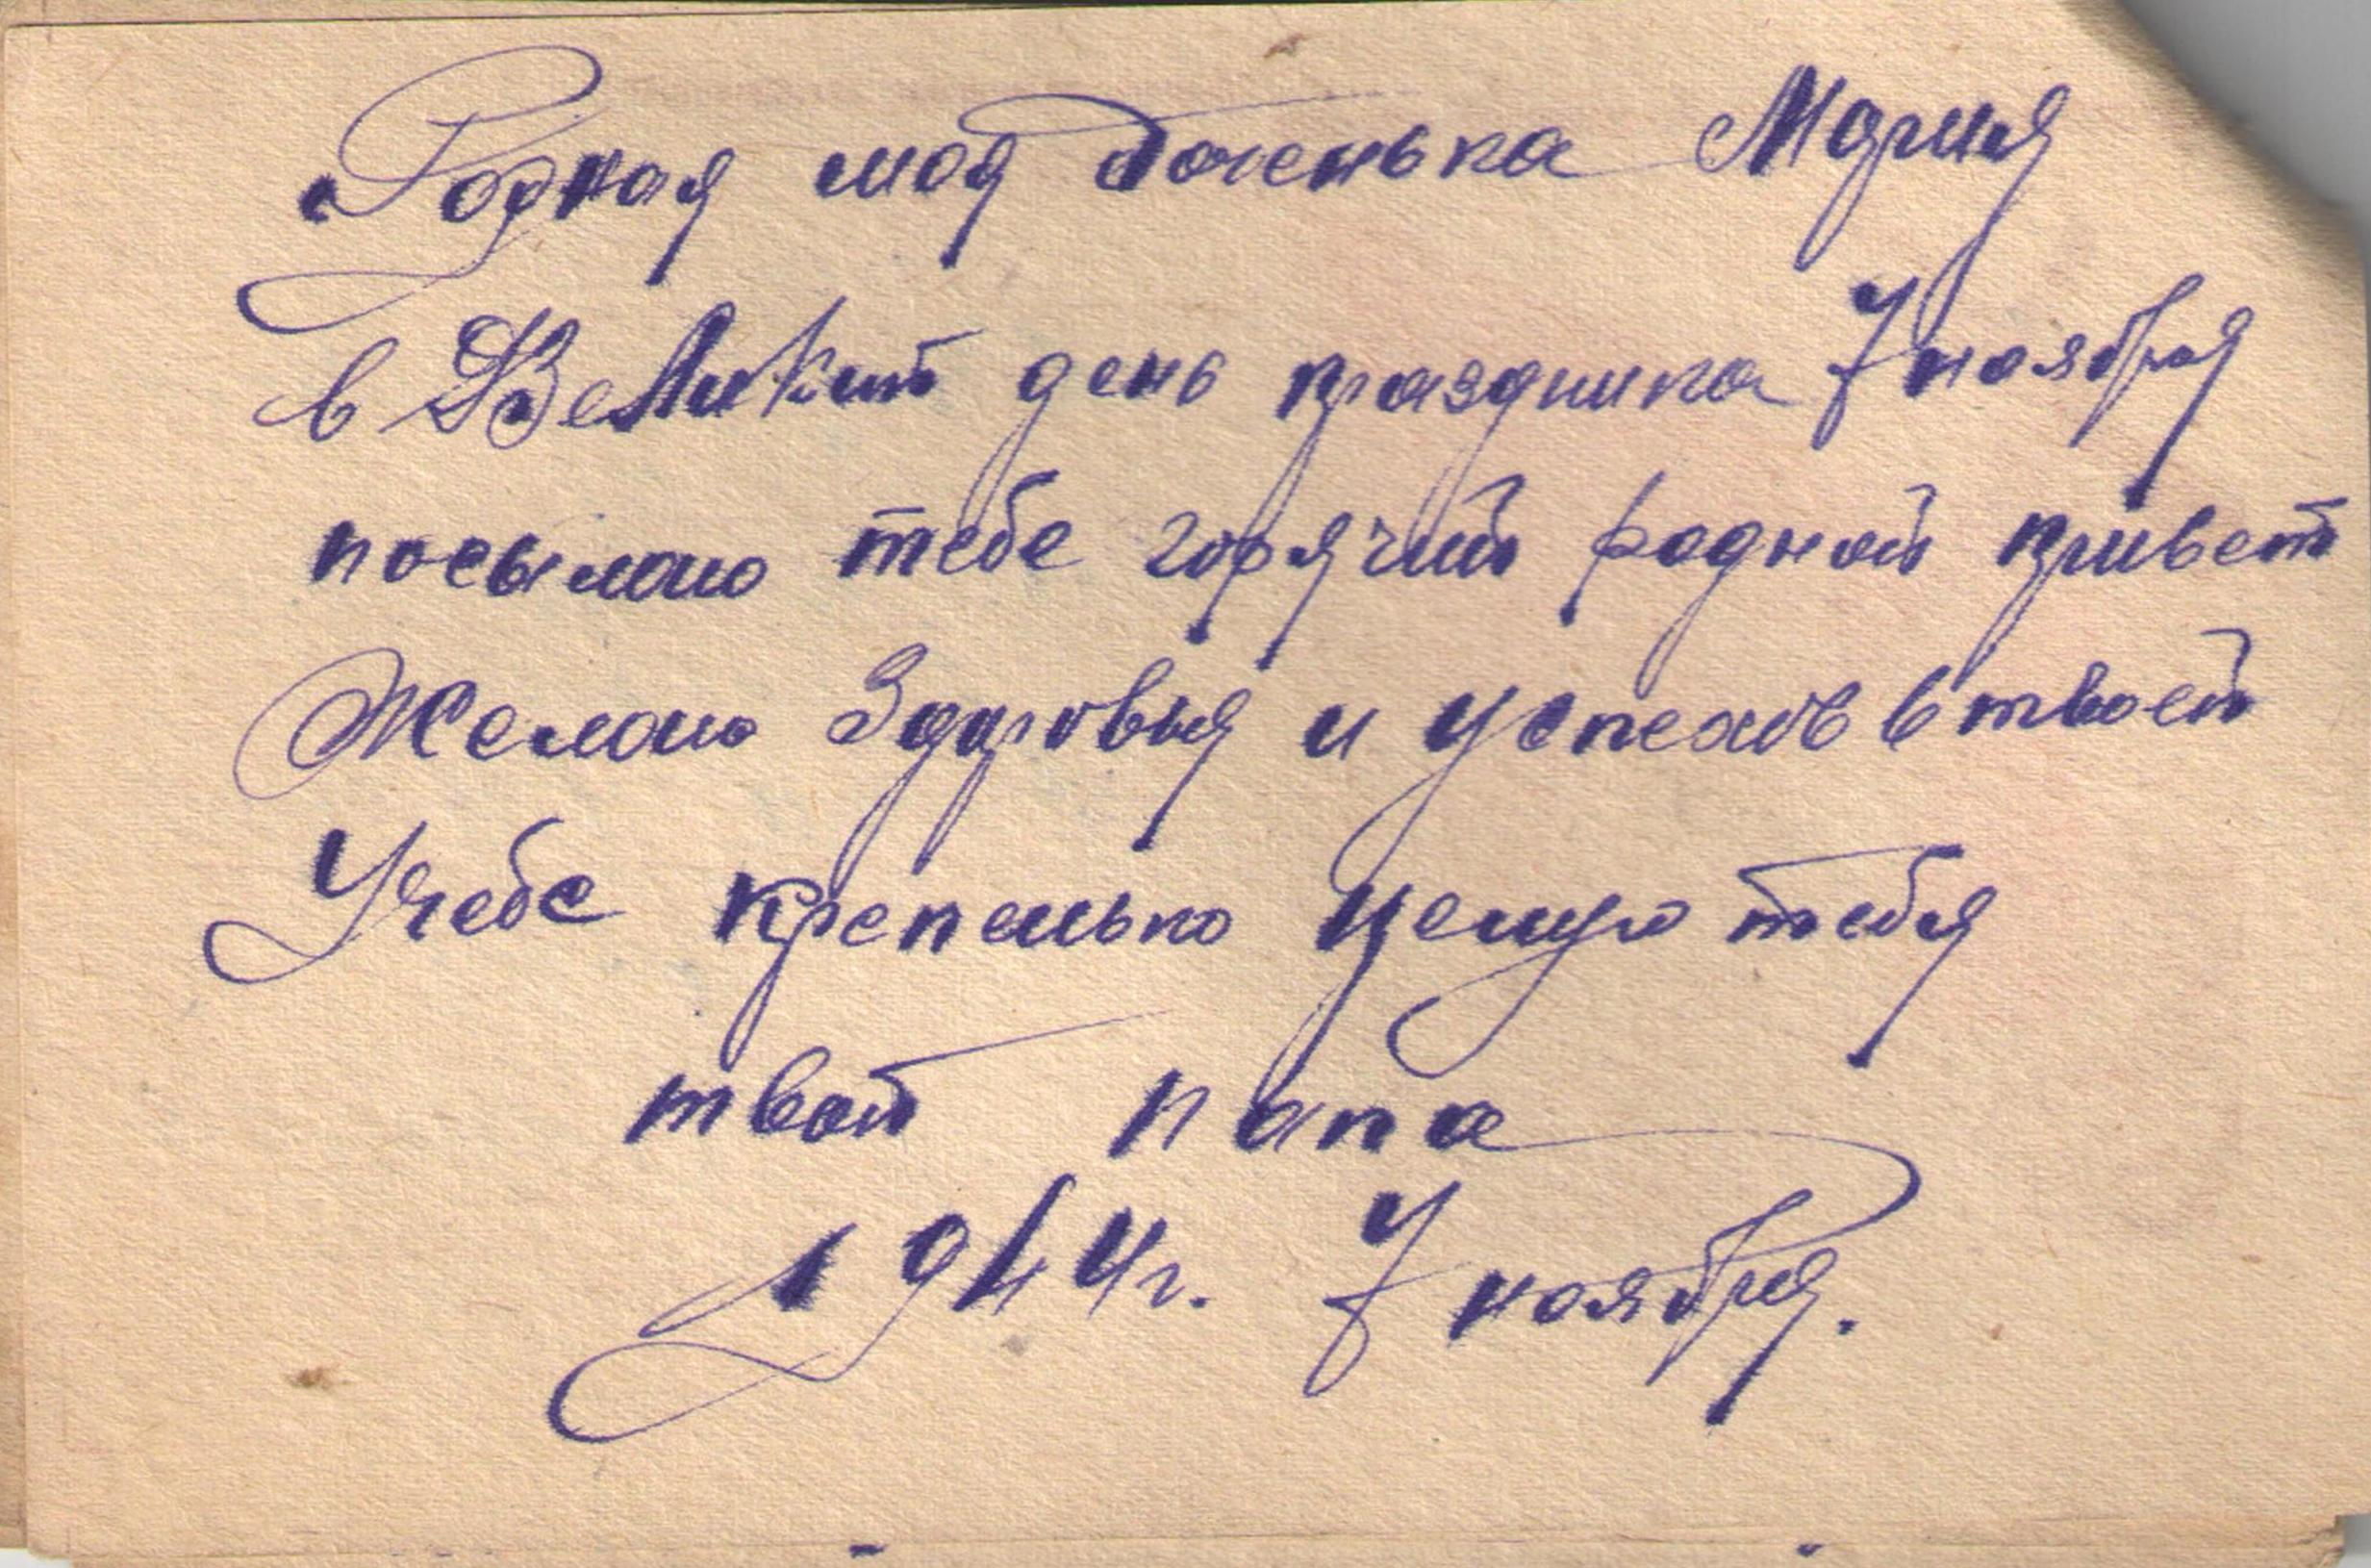 Родная моя доченька Мария
в Великий день праздника 7 ноября
посылаю тебе горячий родной привет
Желаю Здоровья и успехов в твоей
Учебе крепенько целую тебя
твой папа
1944г. 7 ноября.